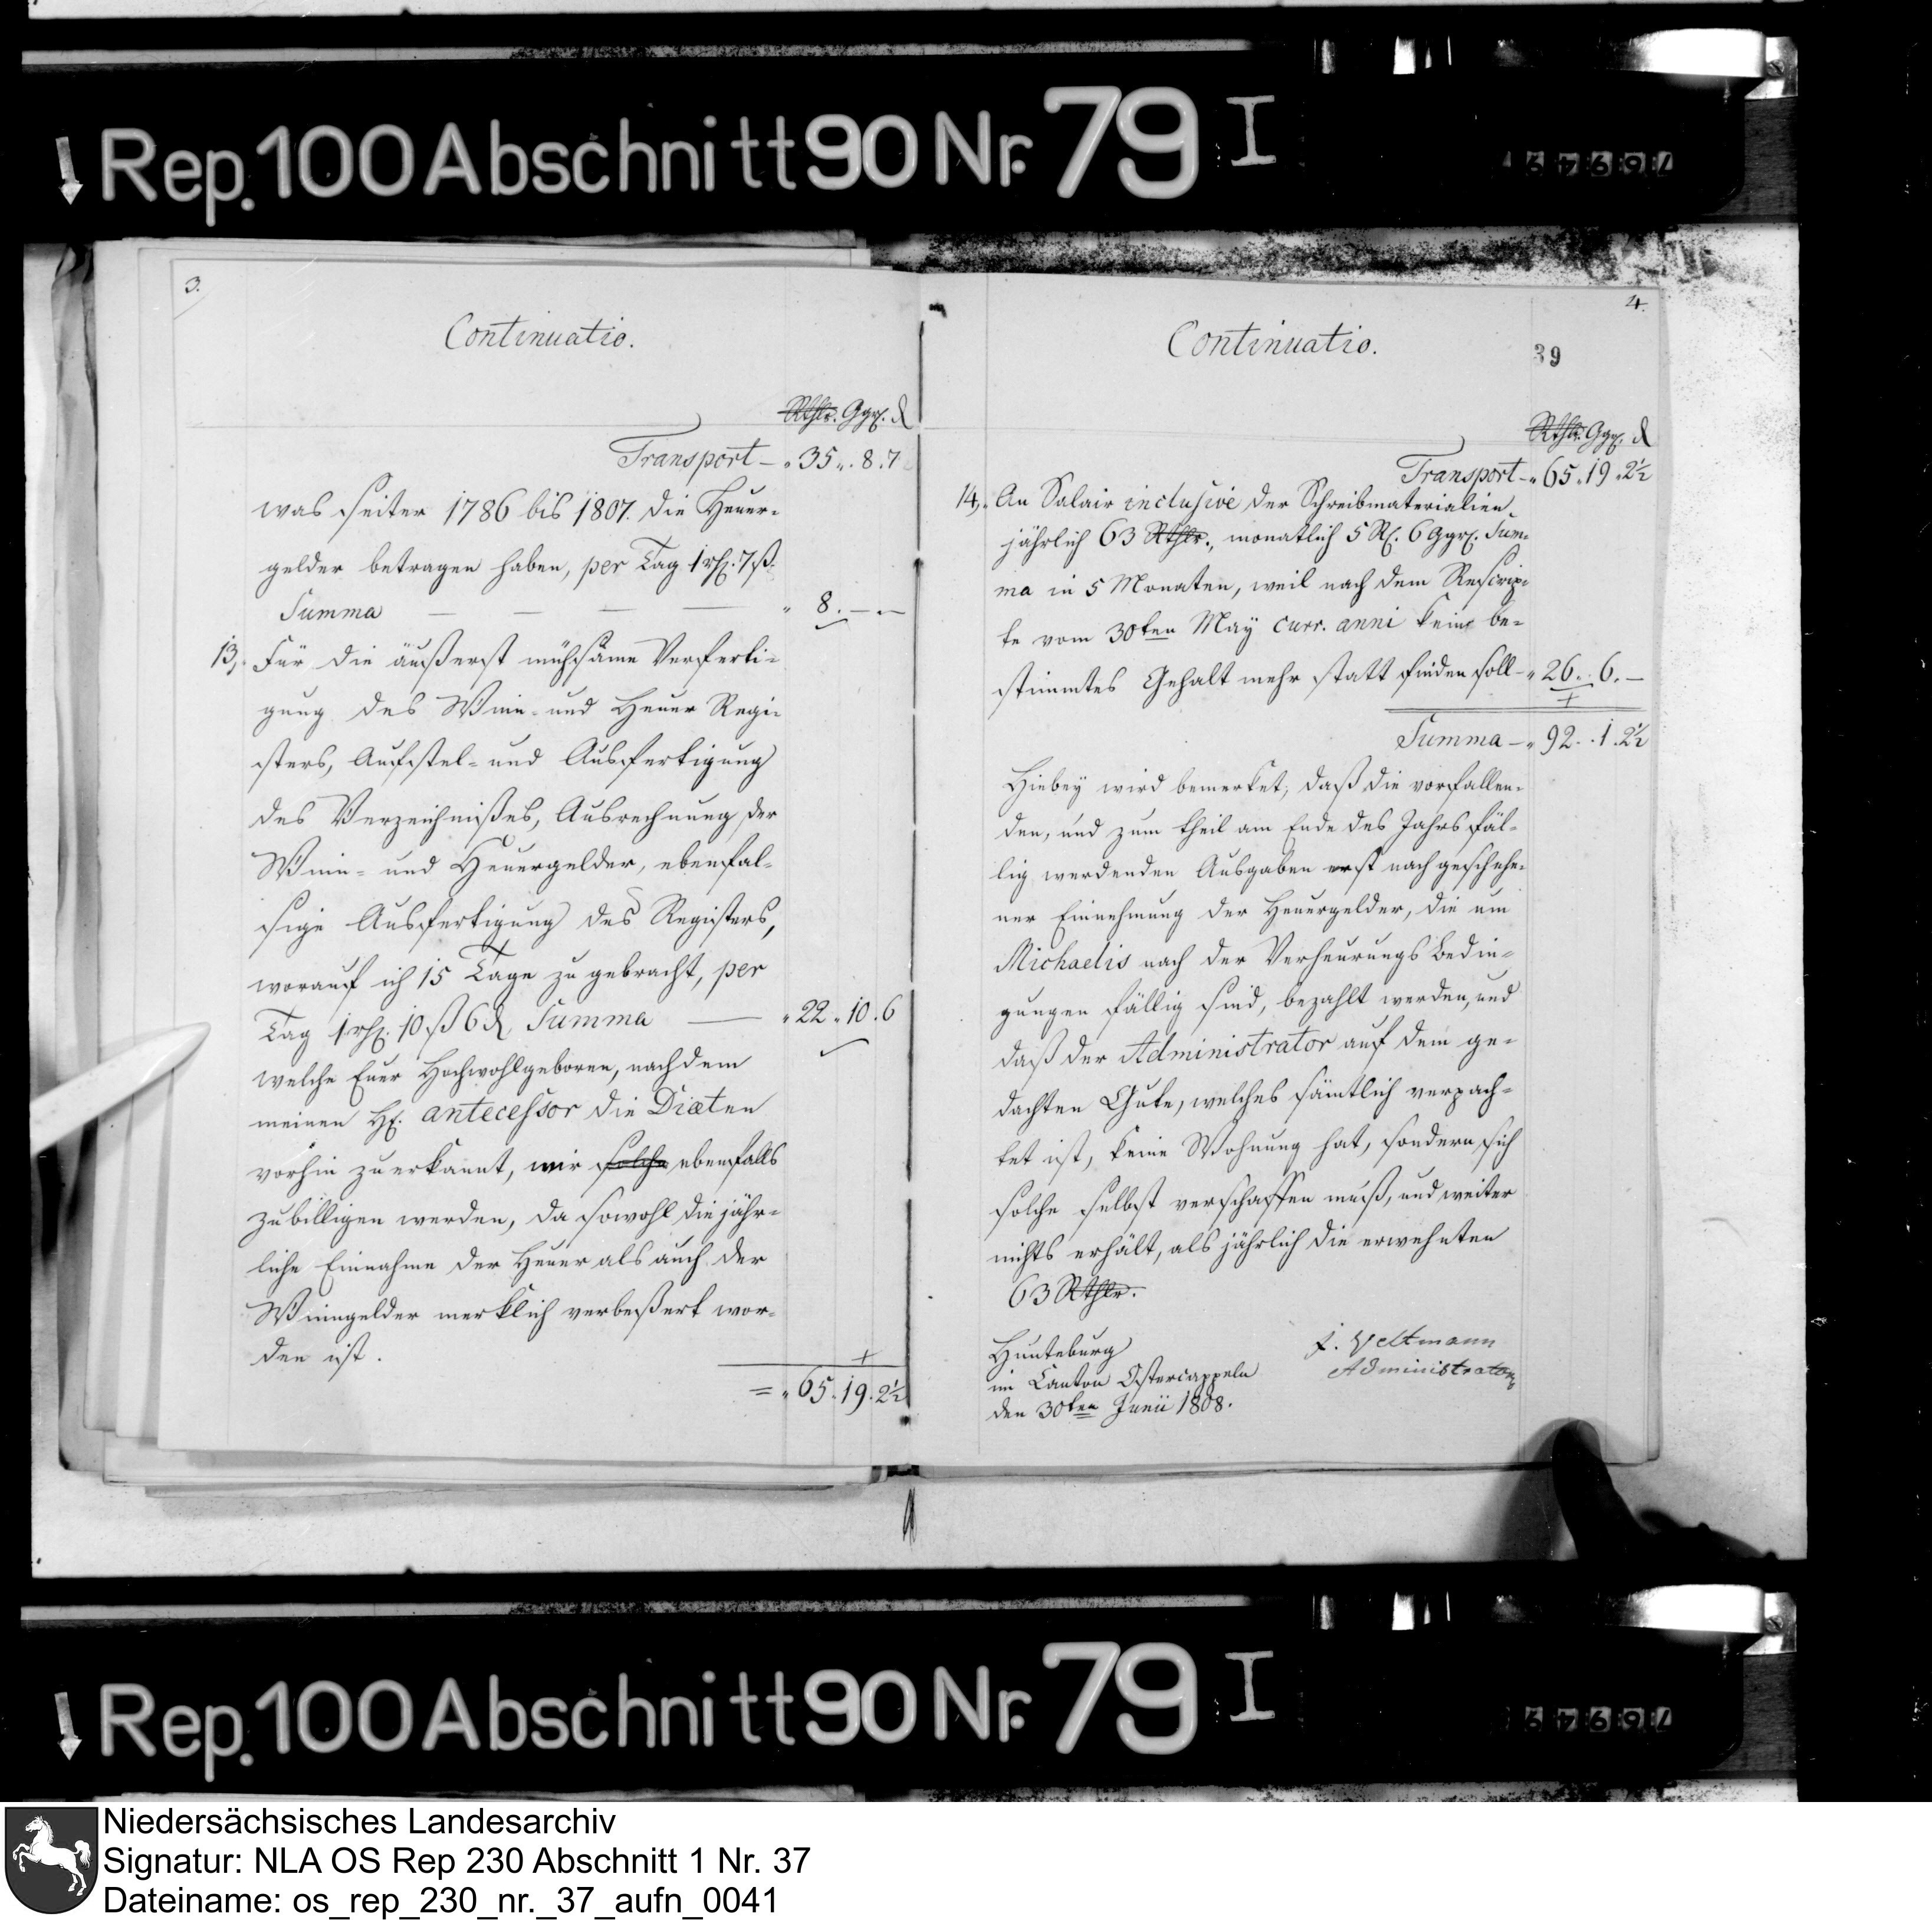 Rep. 100 Abschnitt 90 Nr. 79 I
3.
Continuatio.
Rthlr. Ggr. d
Transport – „ 35 „ 8 . 7
was seiter 1786 bis 1807. die Heuer-
gelder betragen haben, per Tag 1 rh. 7 ß.
Summa — — — — „ 8 . — . —
13,. Für die äußerst mühsame Verferti-
gung des Winn- und Heuer Regi-
sters, Aufstel- und Ausfertigung
des Verzeichnißes, Ausrechnung der
Winn- und Heuergelder, ebenfal-
sige Ausfertigung des Registers,
worauf ich 15 Tage zu gebracht, per
Tag 1 rh. 10 ß 6 d, Summa — „ 22 „ 10 . 6
welche Euer Hochwohlgeboren, nachdem
meinen H. antecessor die Diæten
vorhin zuerkannt, mir solche ebenfalls
zubilligen werden, da sowohl die jähr-
liche Einnahme der Heuer als auch der
Winngelder merklich verbeßert wor-
den ist.
= „ 65 „ 19 . 2½
4.
Continuatio.
39
Rthlr. Ggr. d
Transport – „ 65 „ 19 „ 2½
14,. An Salair inclusive der Schreibmaterialien
jährlich 63 Rthlr., monatlich 5 R. 6 Ggr. Sum-
ma in 5 Monaten, weil nach dem Rescrip-
te vom 30ten May curr. anni kein be-
stimmtes Gehalt mehr statt finden soll – „ 26 „ 6 . —
Summa – „ 92 . . 1 . 2½
Hiebey wird bemerket, daß die vorfallen-
den, und zum theil am Ende des Jahrs fäl-
lig werdenden Ausgaben erst nach geschehe-
ner Einnehmung der Heuergelder, die um
Michaelis nach der Verheurungs Bedin-
gungen fällig sind, bezahlt werden, und
daß der Administrator auf dem ge-
dachten Gute, welches sämtlich verpach-
tet ist, keine Wohnung hat, sondern sich
solche selbst verschaffen muß, und weiter
nichts erhält, als jährlich die erwehnten
63 Rthlr.
Hunteburg
im Canton Ostercappeln
den 30ten Junii 1808.
J. Veltmann
Administrator
Rep. 100 Abschnitt 90 Nr. 79 I
Niedersächsisches Landesarchiv
Signatur: NLA OS Rep 230 Abschnitt 1 Nr. 37
Dateiname: os_rep_230_nr._37_aufn_0041